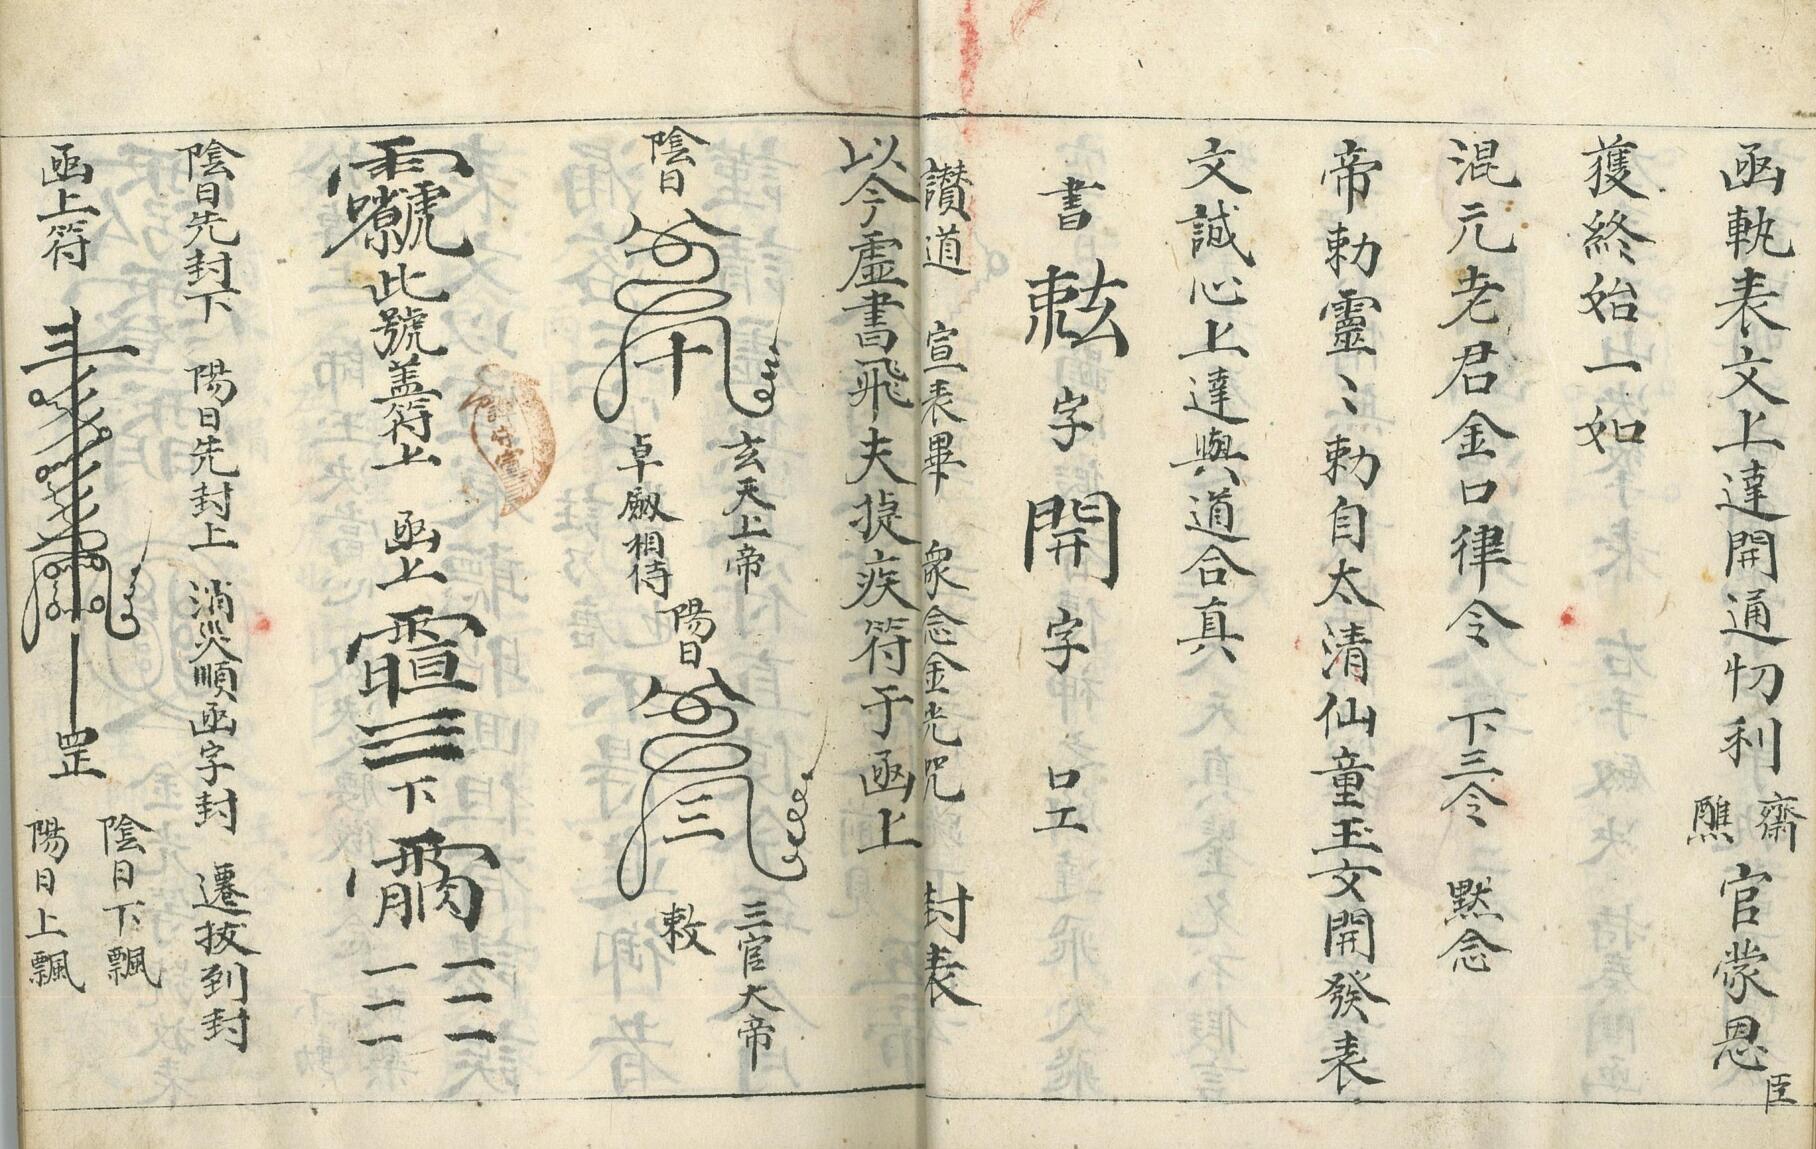 函執表文上達開通切利齋醮官蒙恩臣
獲終始一如
混元老君金口律令 下三令 黙念
帝勅靈〻勅自太清仙童玉女開發表
文誠心上達與道合真
書 字開字 口工
讃道 宣表畢 衆念金光咒 封表
以今虛書飛夫捷疾符于函上
陰日 玄天上帝
卓劔相待
陽日 三官大帝
敕
此號盖符上 函上 三 下
陰日先封下 陽日先封上 消災順函字封 遷拔到封
函上符 罡
陰日下飄
陽日上飄